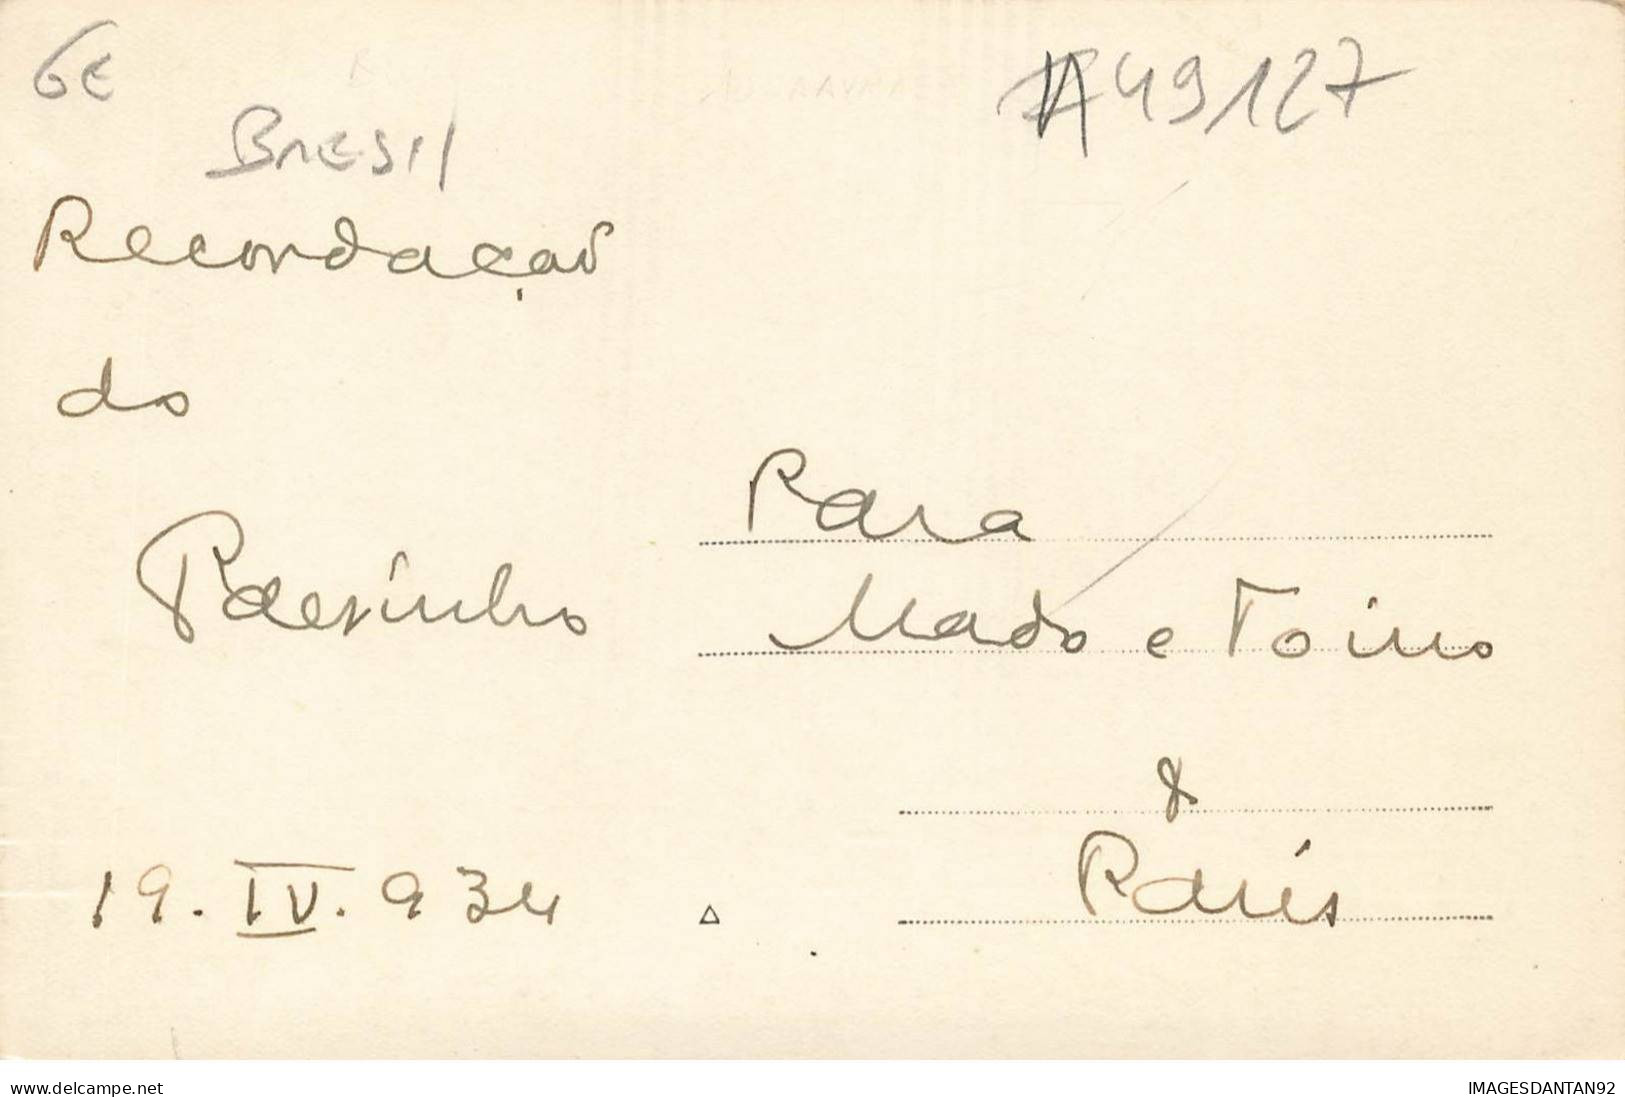 6€
A49127
BRESIL
Recordação
do
Paesinho
Para
Mado e Toino
&
Paris
19. IV. 934
www.delcampe.net
IMAGESDANTAN92